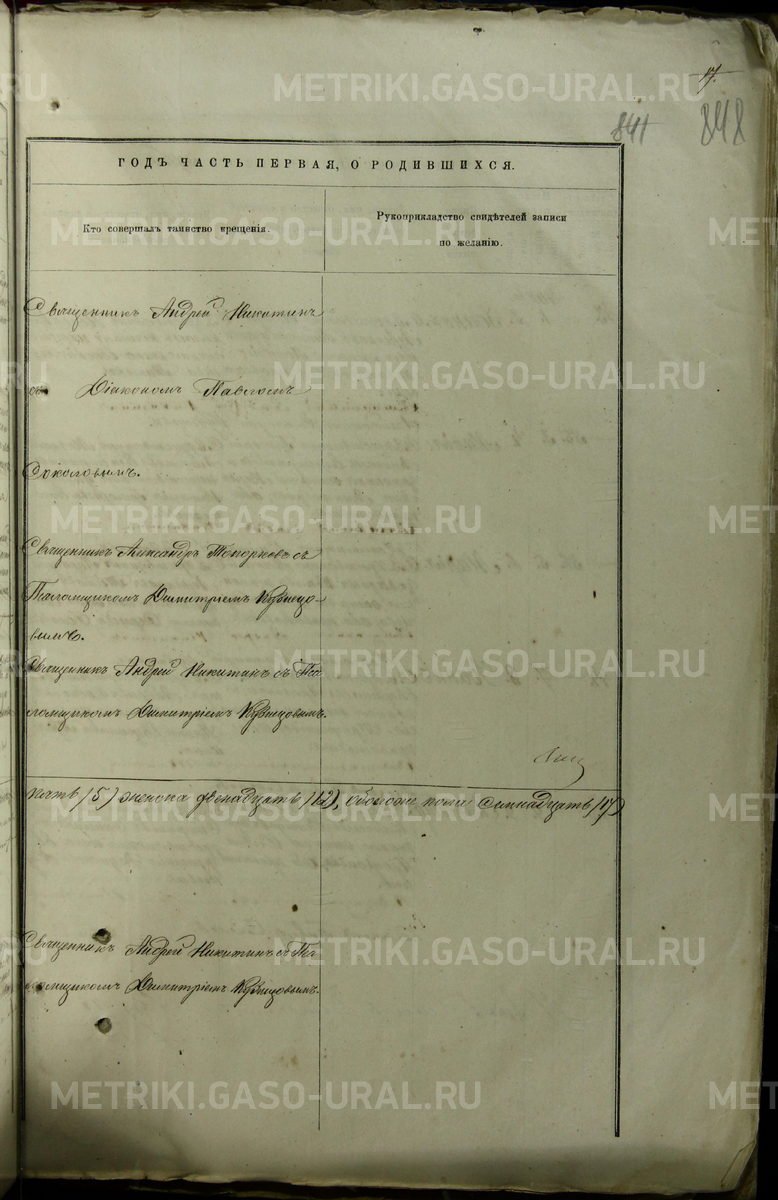 17.
841 848
ГОДЪ ЧАСТЬ ПЕРВАЯ, О РОДИВШИХСЯ.
Кто совершалъ таинство крещенія.
Рукоприкладство свидѣтелей записи
по желанію.
Священникъ Андрей Никитинъ
съ Діакономъ Павломъ
Соколовымъ.
Священникъ Александръ Топорковъ съ
Псаломщикомъ Димитріемъ Кузнецо-
вымъ.
Священникъ Андрей Никитинъ съ Пса-
ломщикомъ Димитріемъ Кузнецовымъ.
пять (5) женска двенадцать (12), обоего пола семнадцать (17)
Священникъ Андрей Никитинъ съ Пса-
ломщикомъ Димитріемъ Кузнецовымъ.
METRIKI.GASO-URAL.RU